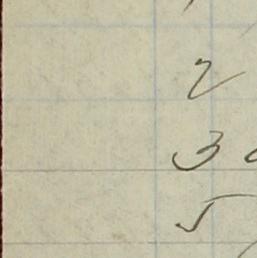 2
3
5